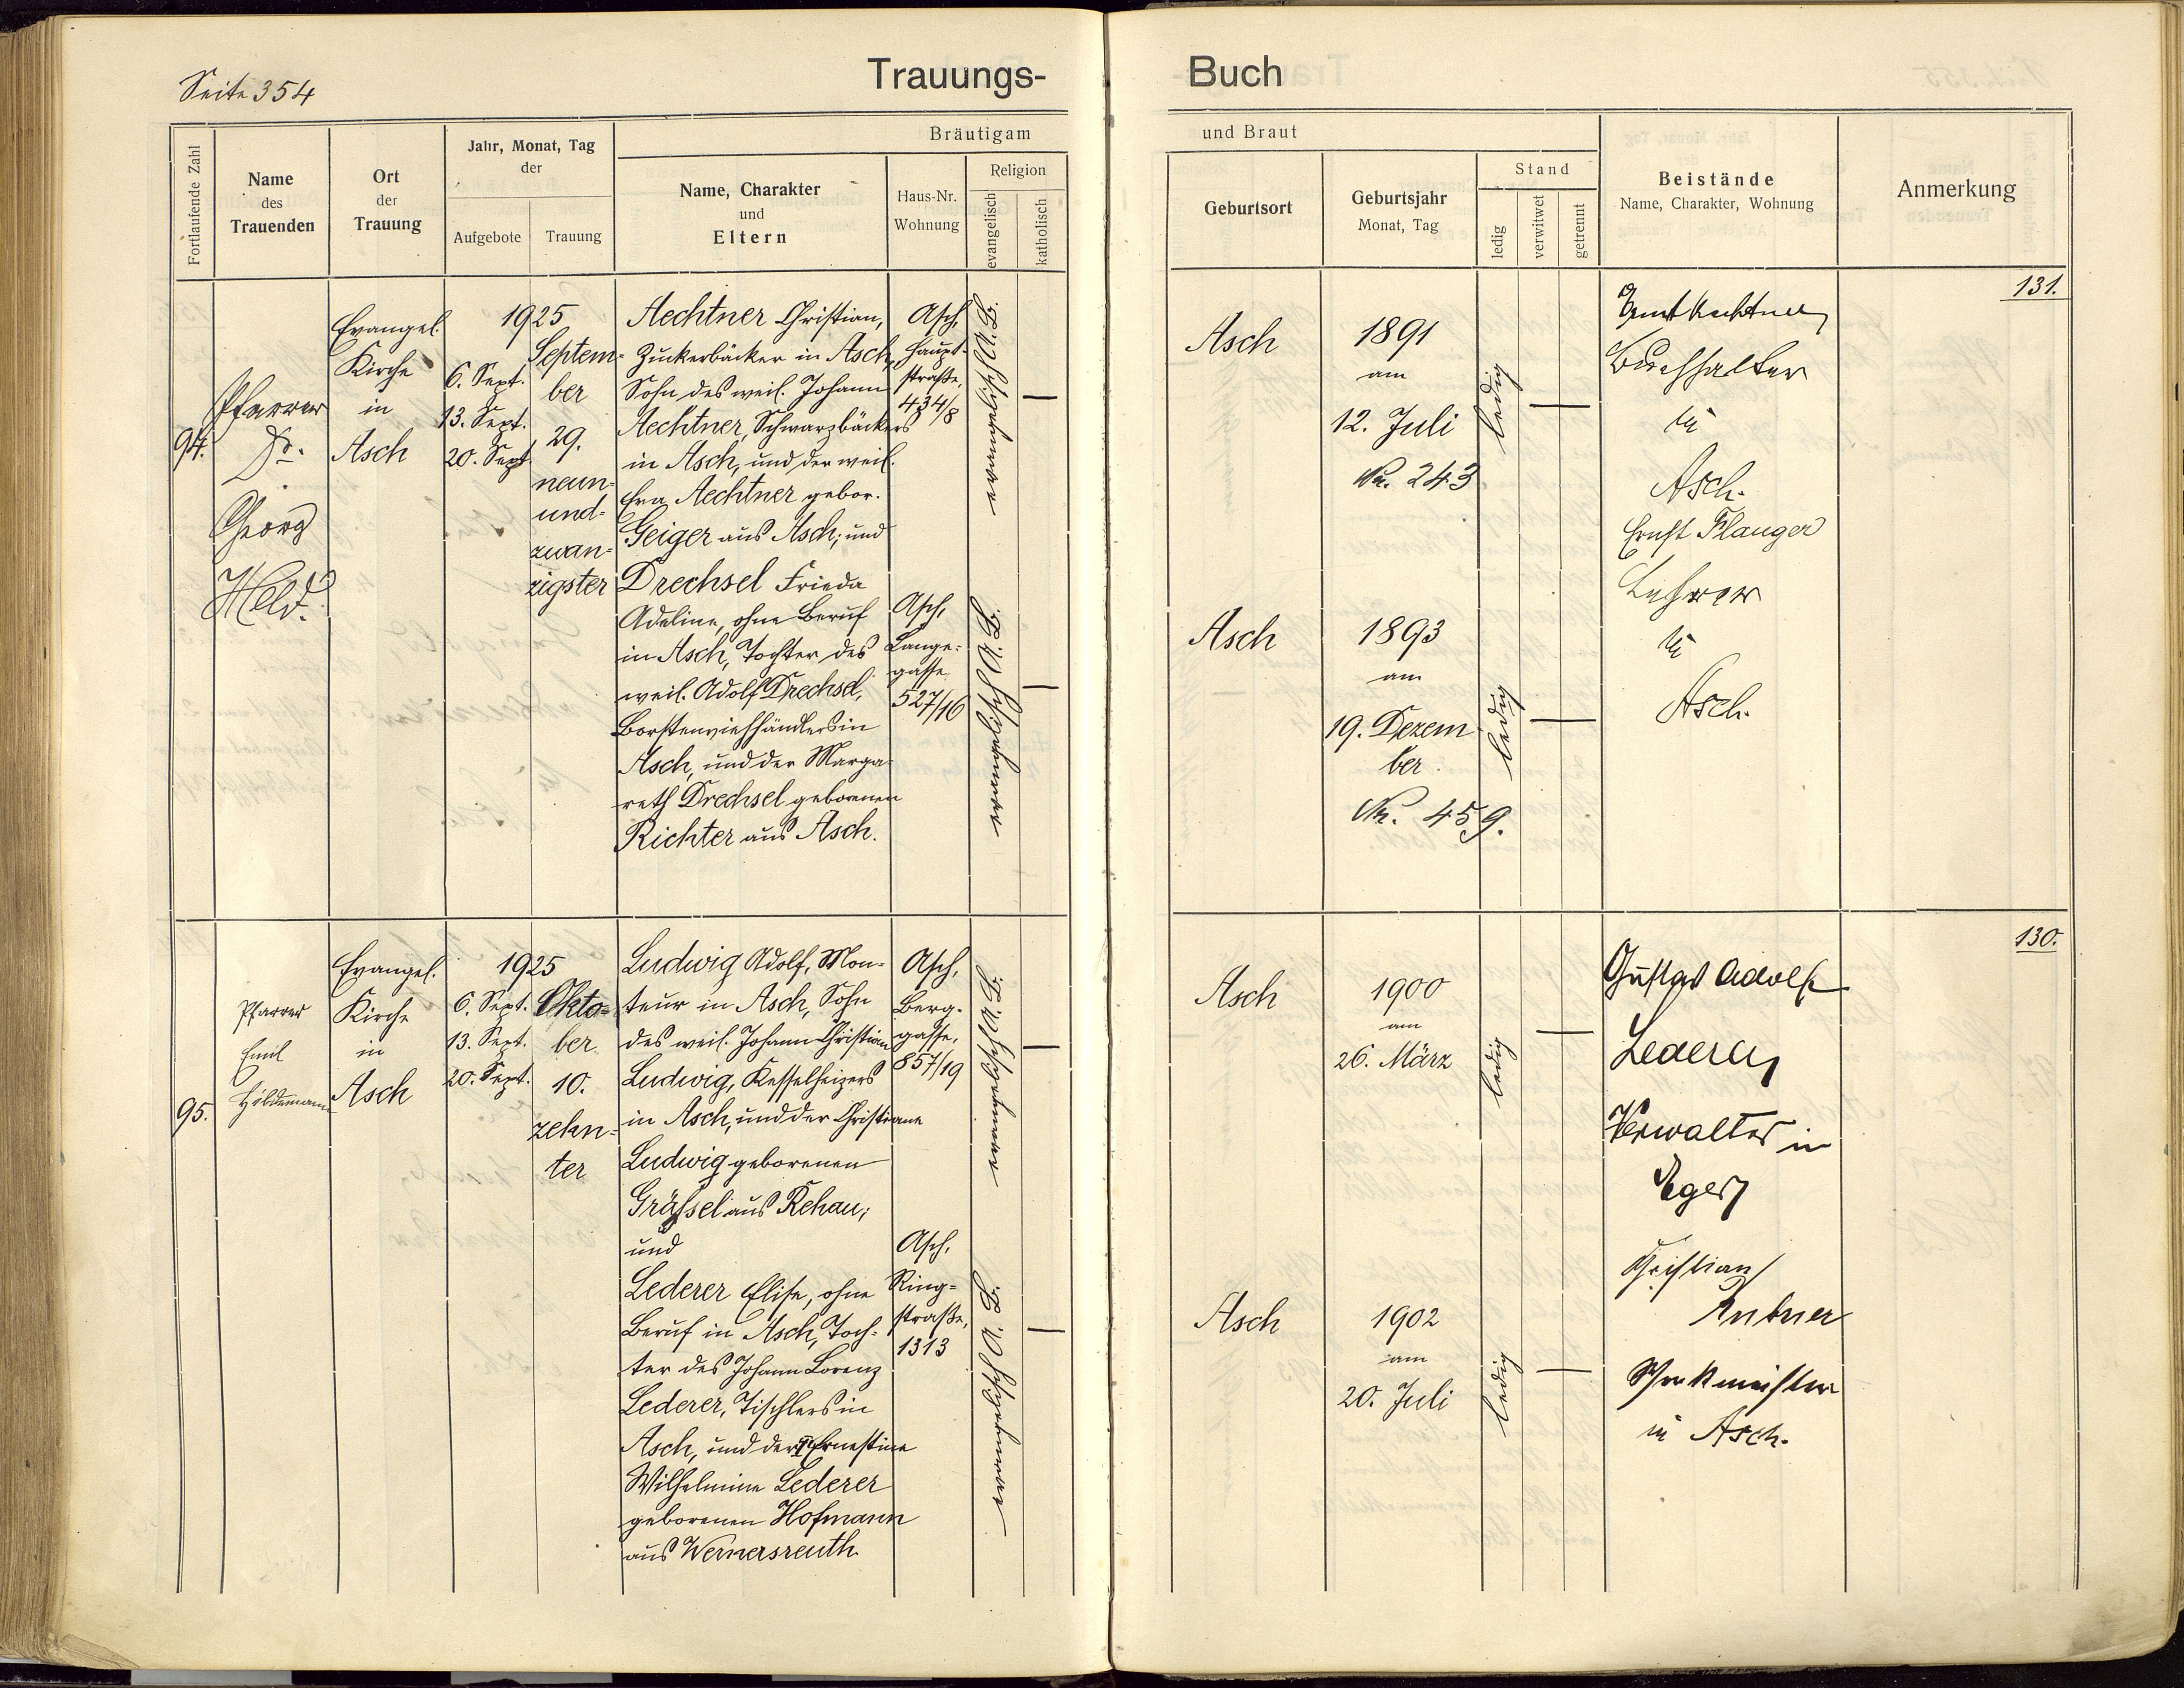 Seite 354
Trauungs-
Buch
Fortlaufende Zahl
Name
des
Trauenden
Ort
der
Trauung
Jahr, Monat, Tag
der
Aufgebote
Trauung
Bräutigam
Name, Charakter
und
Eltern
Haus-Nr.
Wohnung
Religion
evangelisch
katholisch
und Braut
Geburtsort
Geburtsjahr
Monat, Tag
Stand
ledig
verwitwet
getrennt
Beistände
Name, Charakter, Wohnung
Anmerkung
94.
Pfarrer
Dr.
Georg
Held.
Evangel.
Kirche
in
Asch
1925
6. Sept.
13. Sept.
20. Sept.
Septem-
ber
29.
neun-
und-
zwan-
zigster
Aechtner Christian,
Zuckerbäcker in Asch,
Sohn des weil. Johann
Aechtner, Schwarzbäckers
in Asch, und der weil.
Eva Aechtner gebor.
Geiger aus Asch; und
Drechsel Frieda
Adeline, ohne Beruf
in Asch, Tochter des
weil. Adolf Drechsel,
Borstenviehhändlers in
Asch, und der Marga-
reth Drechsel geborenen
Richter aus Asch.
Asch,
Haupt-
straße,
434/8
Asch,
Lange-
gasse
527/16
evangelisch A. B.
evangelisch A. B.
—
—
Asch
1891
am
12. Juli
No. 243
ledig
—
Asch
1893
am
19. Dezem
ber.
No. 459.
ledig
—
Ernst Aechtner
Buchhalter
in
Asch.
Ernst Planger
Lehrer
in
Asch.
131.
95.
Pfarrer
Emil
Hildemann
Evangel.
Kirche
in
Asch
1925
6. Sept.
13. Sept.
20. Sept.
Okto-
ber
10.
zehn-
ter
Ludwig Adolf, Mon-
teur in Asch, Sohn
des weil. Johann Christian
Ludwig, Kesselheizers
in Asch, und der Christiane
Ludwig geborenen
Gräßel aus Rehau;
und
Lederer Elise, ohne
Beruf in Asch, Toch-
ter des Johann Lorenz
Lederer, Tischlers in
Asch, und der Ernestine
Wilhelmine Lederer
geborenen Hofmann
aus Wernersreuth
Asch,
Berg-
gasse,
857/19
Asch,
Ring-
straße,
1313
evangelisch A. B.
evangelisch A. B.
—
—
Asch
1900
am
26. März
ledig
—
Asch
1902
am
20. Juli
ledig
—
Gustav Adolf
Lederer
Verwalter in
Eger
Christian
Werkmeister
in Asch.
130.